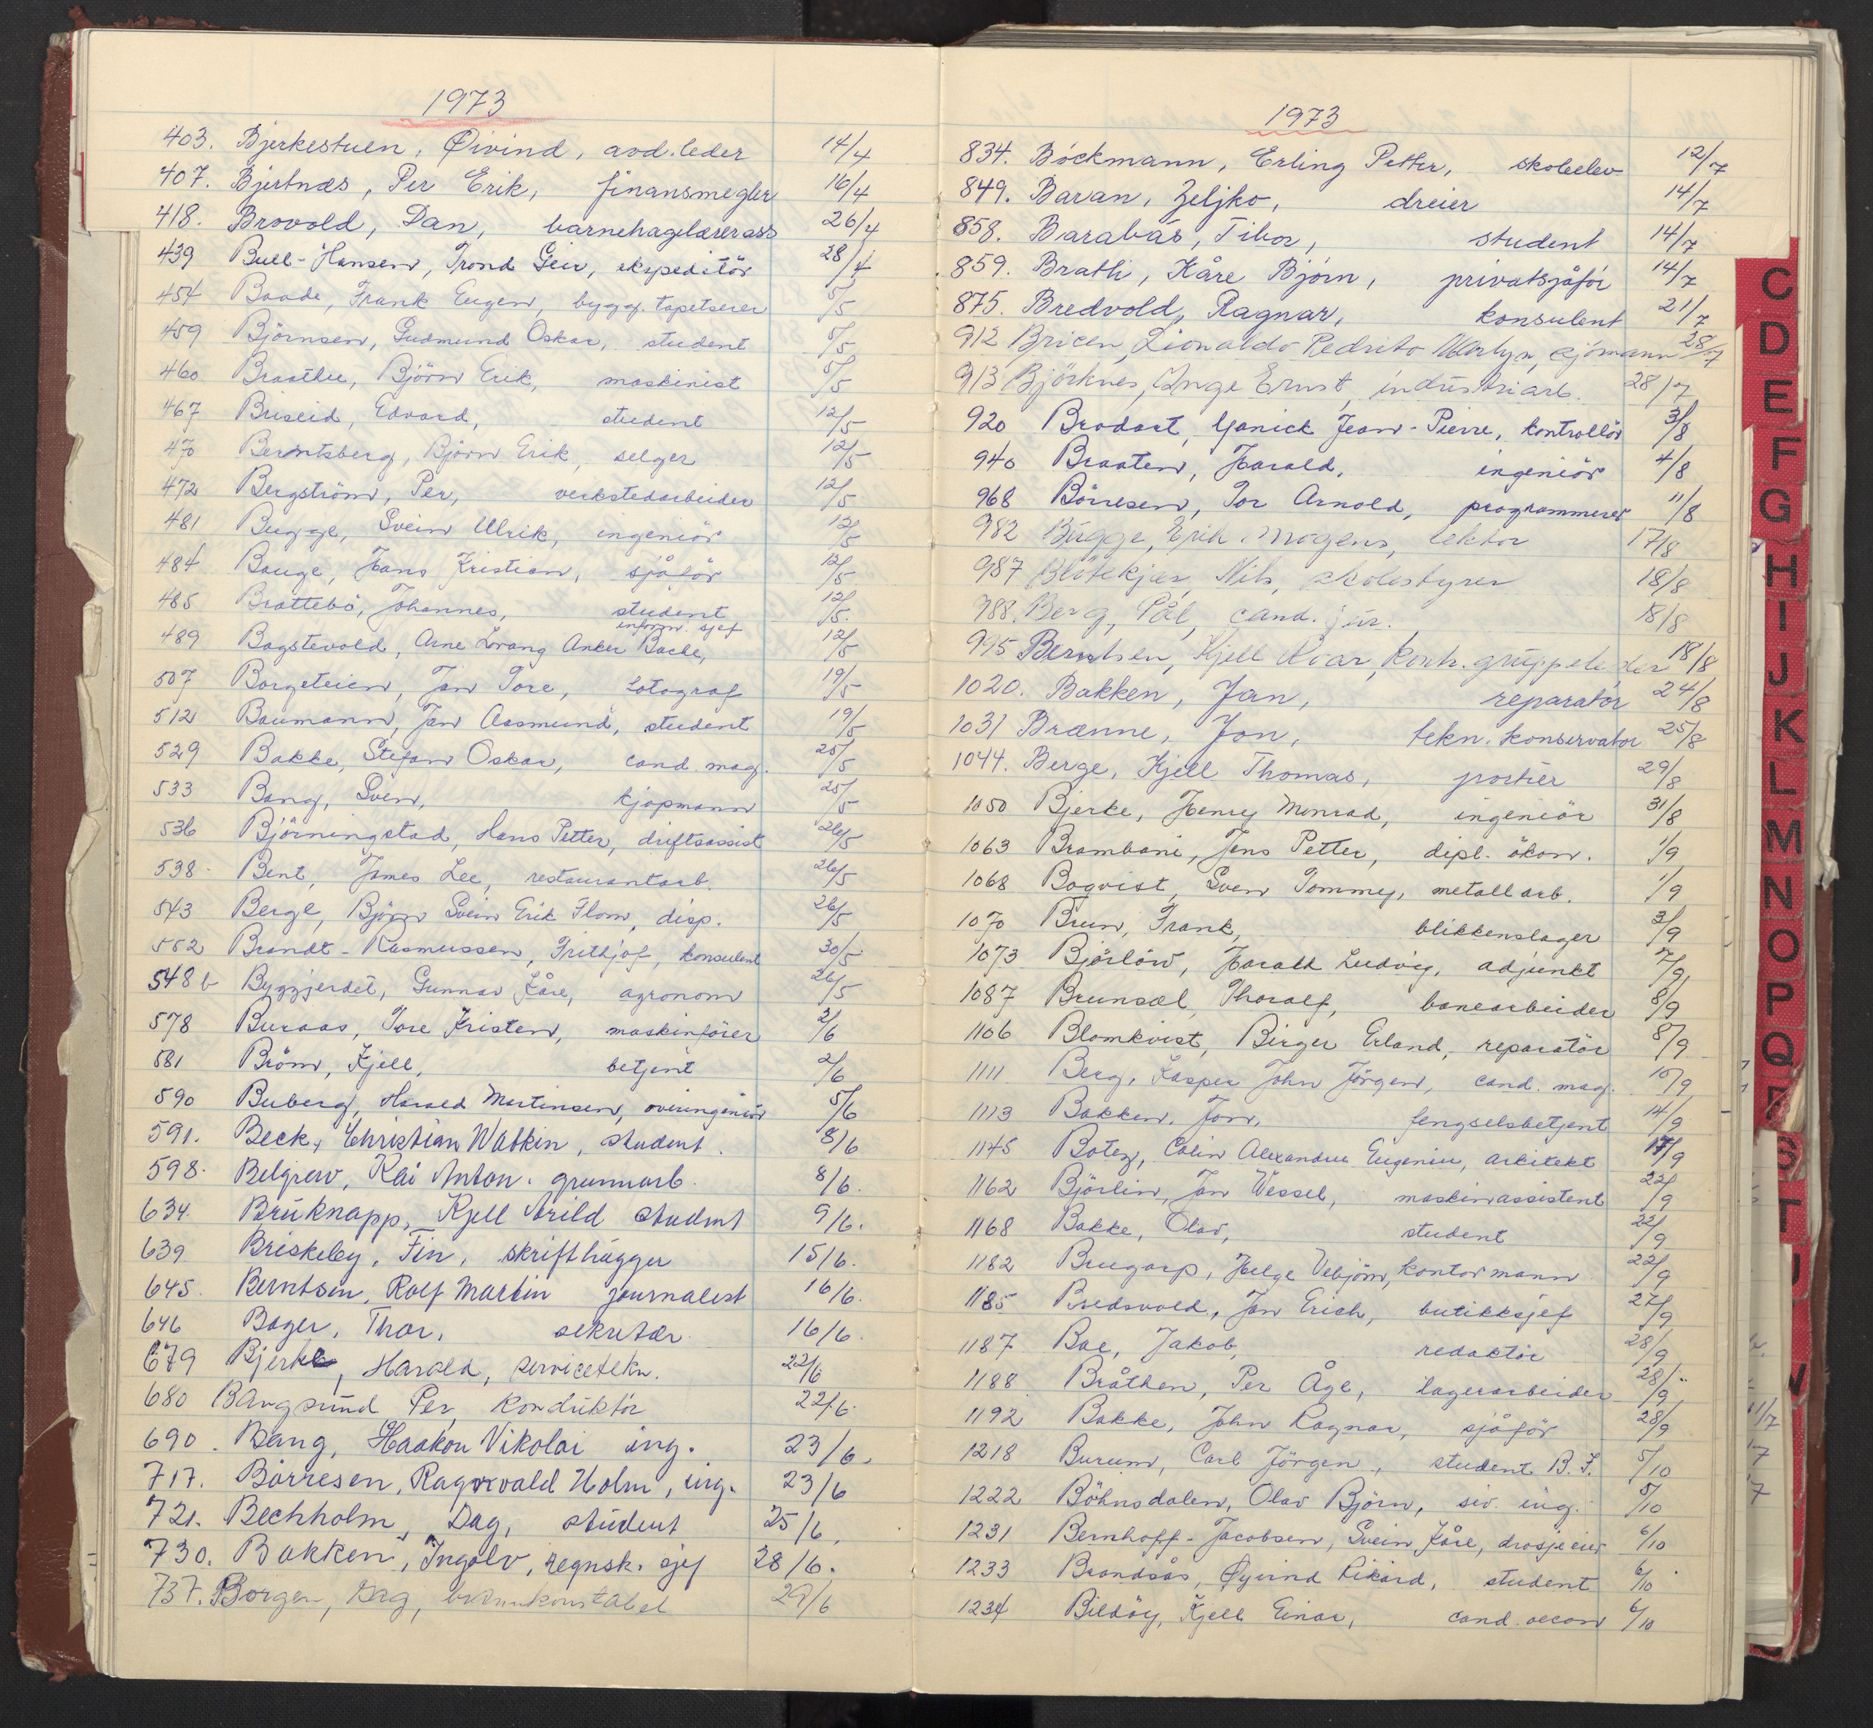 1973
403. Bjerkestuen, Øivind, avd. leder 14/4
407. Bjertnæs, Per Erik, finansmegler 16/4
418. Brovold, Dan, barnehagelærerass 26/4
439 Bull-Hansen, Trond Geir, ekspeditör 28/4
454 Baade, Frank Eugen, bygg. tapetserer 5/5
459 Björnsen, Gudmund Oskar, student 5/5
460 Braathe, Björn Erik, maskinist 5/5
467 Briseid, Edvard, student 12/5
470 Berntsberg, Björn Erik, selger 12/5
472 Bergström, Per, verkstedarbeider 12/5
481 Bugge, Svein Ulrik, ingeniör 12/5
484 Bauge, Hans Kristian, sjåför 12/5
485 Brattebö, Johannes, student 12/5.
inform. sjef
489 Bagstevold, Arne Svang Anker Bache, 12/5
507 Borgeteien, Jan Tore, fotograf 19/5
512 Baumann, Jan Aasmund, student 19/5
529 Bakke, Stefan Oskar, cand. mag. 25/5
533 Bang, Sven, kjøpmann 25/5
536 Björningstad, Hans Petter, driftsassist 26/5
538. Bent, James Lee, restaurantarb. 26/5
543 Berge, Björn Svein Erik Flom, disp. 26/5
552 Brandt-Rasmussen, Frithjof, konsulent 30/5
548 b Byggjerdet, Gunnar Kåre, agronom 26/5
578 Buraas, Tore Kristen, maskinförer 2/6
581 Bröm, Kjell, betjent 2/6
590 Buberg, Harald Martinsen, overingeniör 5/6
591. Beck, Christian Watkin, student. 8/6
598. Belgrav, Kai Anton. grunnarb. 8/6.
634. Bruknapp, Kjell Arild student 9/6.
639. Briskeby, Fin, skrifthugger 15/6.
645. Berntsen, Rolf Martin journalist 16/6.
646 Bager, Thor, sekretær. 16/6.
679 Bjerke, Harald, servicetekn. 22/6
680 Bangsund Per, konduktör 22/6.
690. Bang, Haakon Nikolai ing. 23/6.
717. Börresen, Ragnvald Holm, ing. 23/6
721. Bechholm, Dag, student 25/6.
730. Bakken, Ingolv, regnsk. sjef 28/6.
737. Borgen, 29/6
1973
834. Böckmann, Erling Petter, skoleelev 12/7
849. Bavan, Zeljko, dreier 14/7
858. Barabás, Tibor, student 14/7
859. Brathi, Kåre Bjørn, privatsjåför 14/7
875. Bredvold, Ragnar, konsulent 21/7
912 Bricen, Lionaldo Pedrito Merlyn, sjömann 28/7
913 Björknes, Inge Ernst, industriarb. 28/7
920 Brodart, Yanick Jean-Pierre, kontrollör 3/8
940 Braaten, Harald, ingeniör 4/8
968 Börresen, Tor Arnold, programmerer 11/8
982 Bugge, Erik Mogens, lektor 17/8
987 Blötekjær, Nils, skolestyrer 18/8
988. Berg, Pål, cand. jur. 18/8
995 Berntsen, Kjell Ivar, kontr. gruppeleder 18/8
1020. Bakken, Jan, reparatör 24/8
1031 Brænne, Jon, tekn. konservator 25/8
1044. Berge, Kjell Thomas, portier 29/8
1050 Bjerke, Henry Monrad, ingeniör 31/8
1063 Brambani, Jens Petter, dipl. ökon. 1/9
1068 Boqvist, Sven Tommy, metallarb. 1/9
1070 Brun, Frank, blikkenslager 3/9
1073 Björlöw, Harald Ludvig, adjunkt 7/9
1087 Brunsæl, Thoralf, banearbeider 8/9
1106 Blomkvist, Birger Erland, reparatör 8/9
1111 Berg, Kasper John Jörgen, cand. mag. 10/9
1113 Bakken, Jon, fengselsbetjent 14/9
1145 Botez, Calin Alexandru Eugeniu, arkitekt 17/9
1162 Björlin, Jan Wessel, maskinassistent 22/9
1168 Bakke, Olav, student 22/9
1182 Brugarp, Helge Vebjörn, kontormann 22/9
1185 Bredsvold, Jan Erich, butikksjef 27/9
1187 Bae, Jakob, redaktör 28/9
1188 Bråthen, Per Åge, lagerarbeider 28/9
1192 Bakke, John Ragnar, sjåför 28/9
1218 Burum, Carl Jörgen, student B.I. 5/10
1222 Böhnsdalen, Olav Björn, siv. ing. 5/10
1231 Bernhoff-Jacobsen, Svein Kåre, drosjeeier 6/10
1233 Brandsås, Øyvind Rikard, student 6/10
1234 Bildöy, Kjell Einar, cand. oecon 6/10
C
D
E
F
G
H
I
J
K
L
M
N
O
P
Q
R
S
T